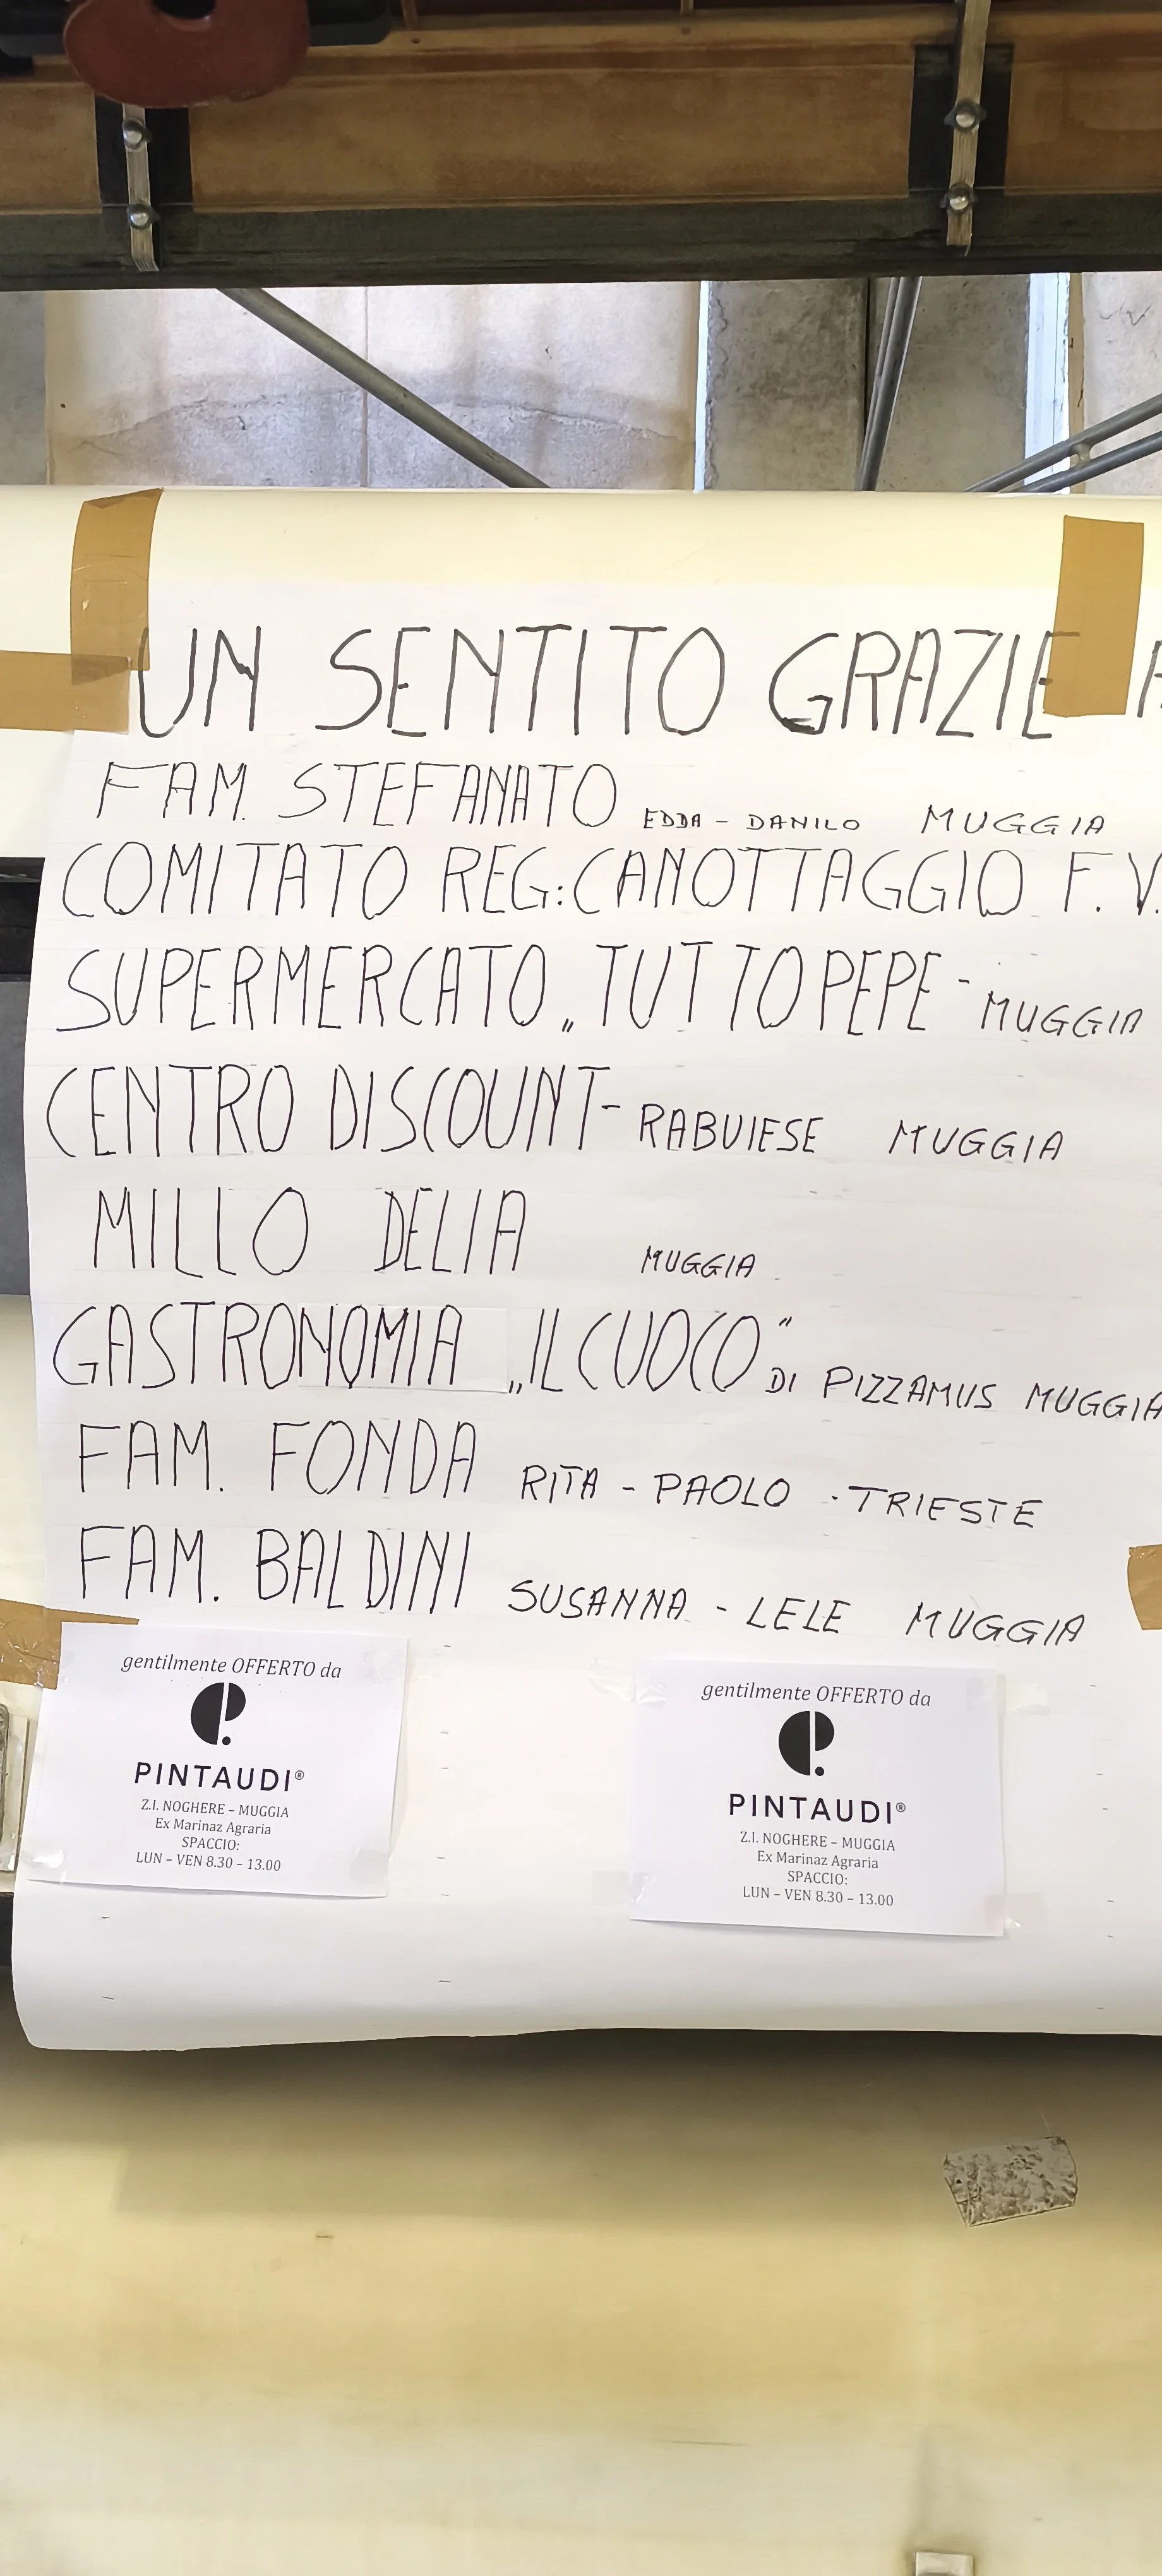 UN SENTITO GRAZIE
FAM. STEFANATO EDDA - DANILO MUGGIA
COMITATO REG: CANOTTAGGIO F. V.
SUPERMERCATO „TUTTOPEPE - MUGGIA
CENTRO DISCOUNT - RABUIESE MUGGIA
MILLO DELIA MUGGIA
GASTRONOMIA „IL CUOCO“ DI PIZZAMUS MUGGIA
FAM. FONDA RITA - PAOLO - TRIESTE
FAM. BALDINI SUSANNA - LELE MUGGIA
gentilmente OFFERTO da
PINTAUDI®
Z.I. NOGHERE – MUGGIA
Ex Marinaz Agraria
SPACCIO:
LUN – VEN 8.30 – 13.00
gentilmente OFFERTO da
PINTAUDI®
Z.I. NOGHERE – MUGGIA
Ex Marinaz Agraria
SPACCIO:
LUN – VEN 8.30 – 13.00